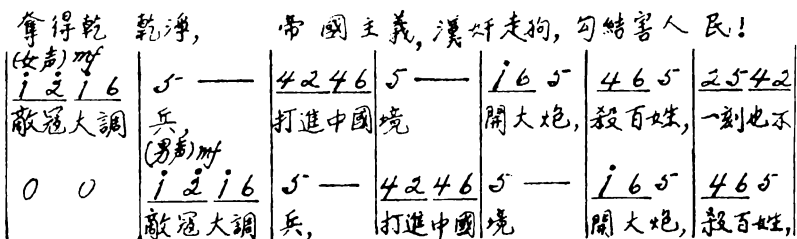 奪得乾 乾淨, 帝國主義,漢奸走狗,勾結害人民!
(女声) mf
i 2̇ i 6 5 — 4 2 4 6 5 — i 6 5 4 6 5 2 5 4 2
敵冠大調 兵, 打進中國 境 開大炮, 殺百姓, 一刻也不
(男声) mf
0 0 i 2̇ i 6 5 — 4 2 4 6 5 — i 6 5 4 6 5
敵冠大調 兵, 打進中國 境 開大炮, 殺百姓,